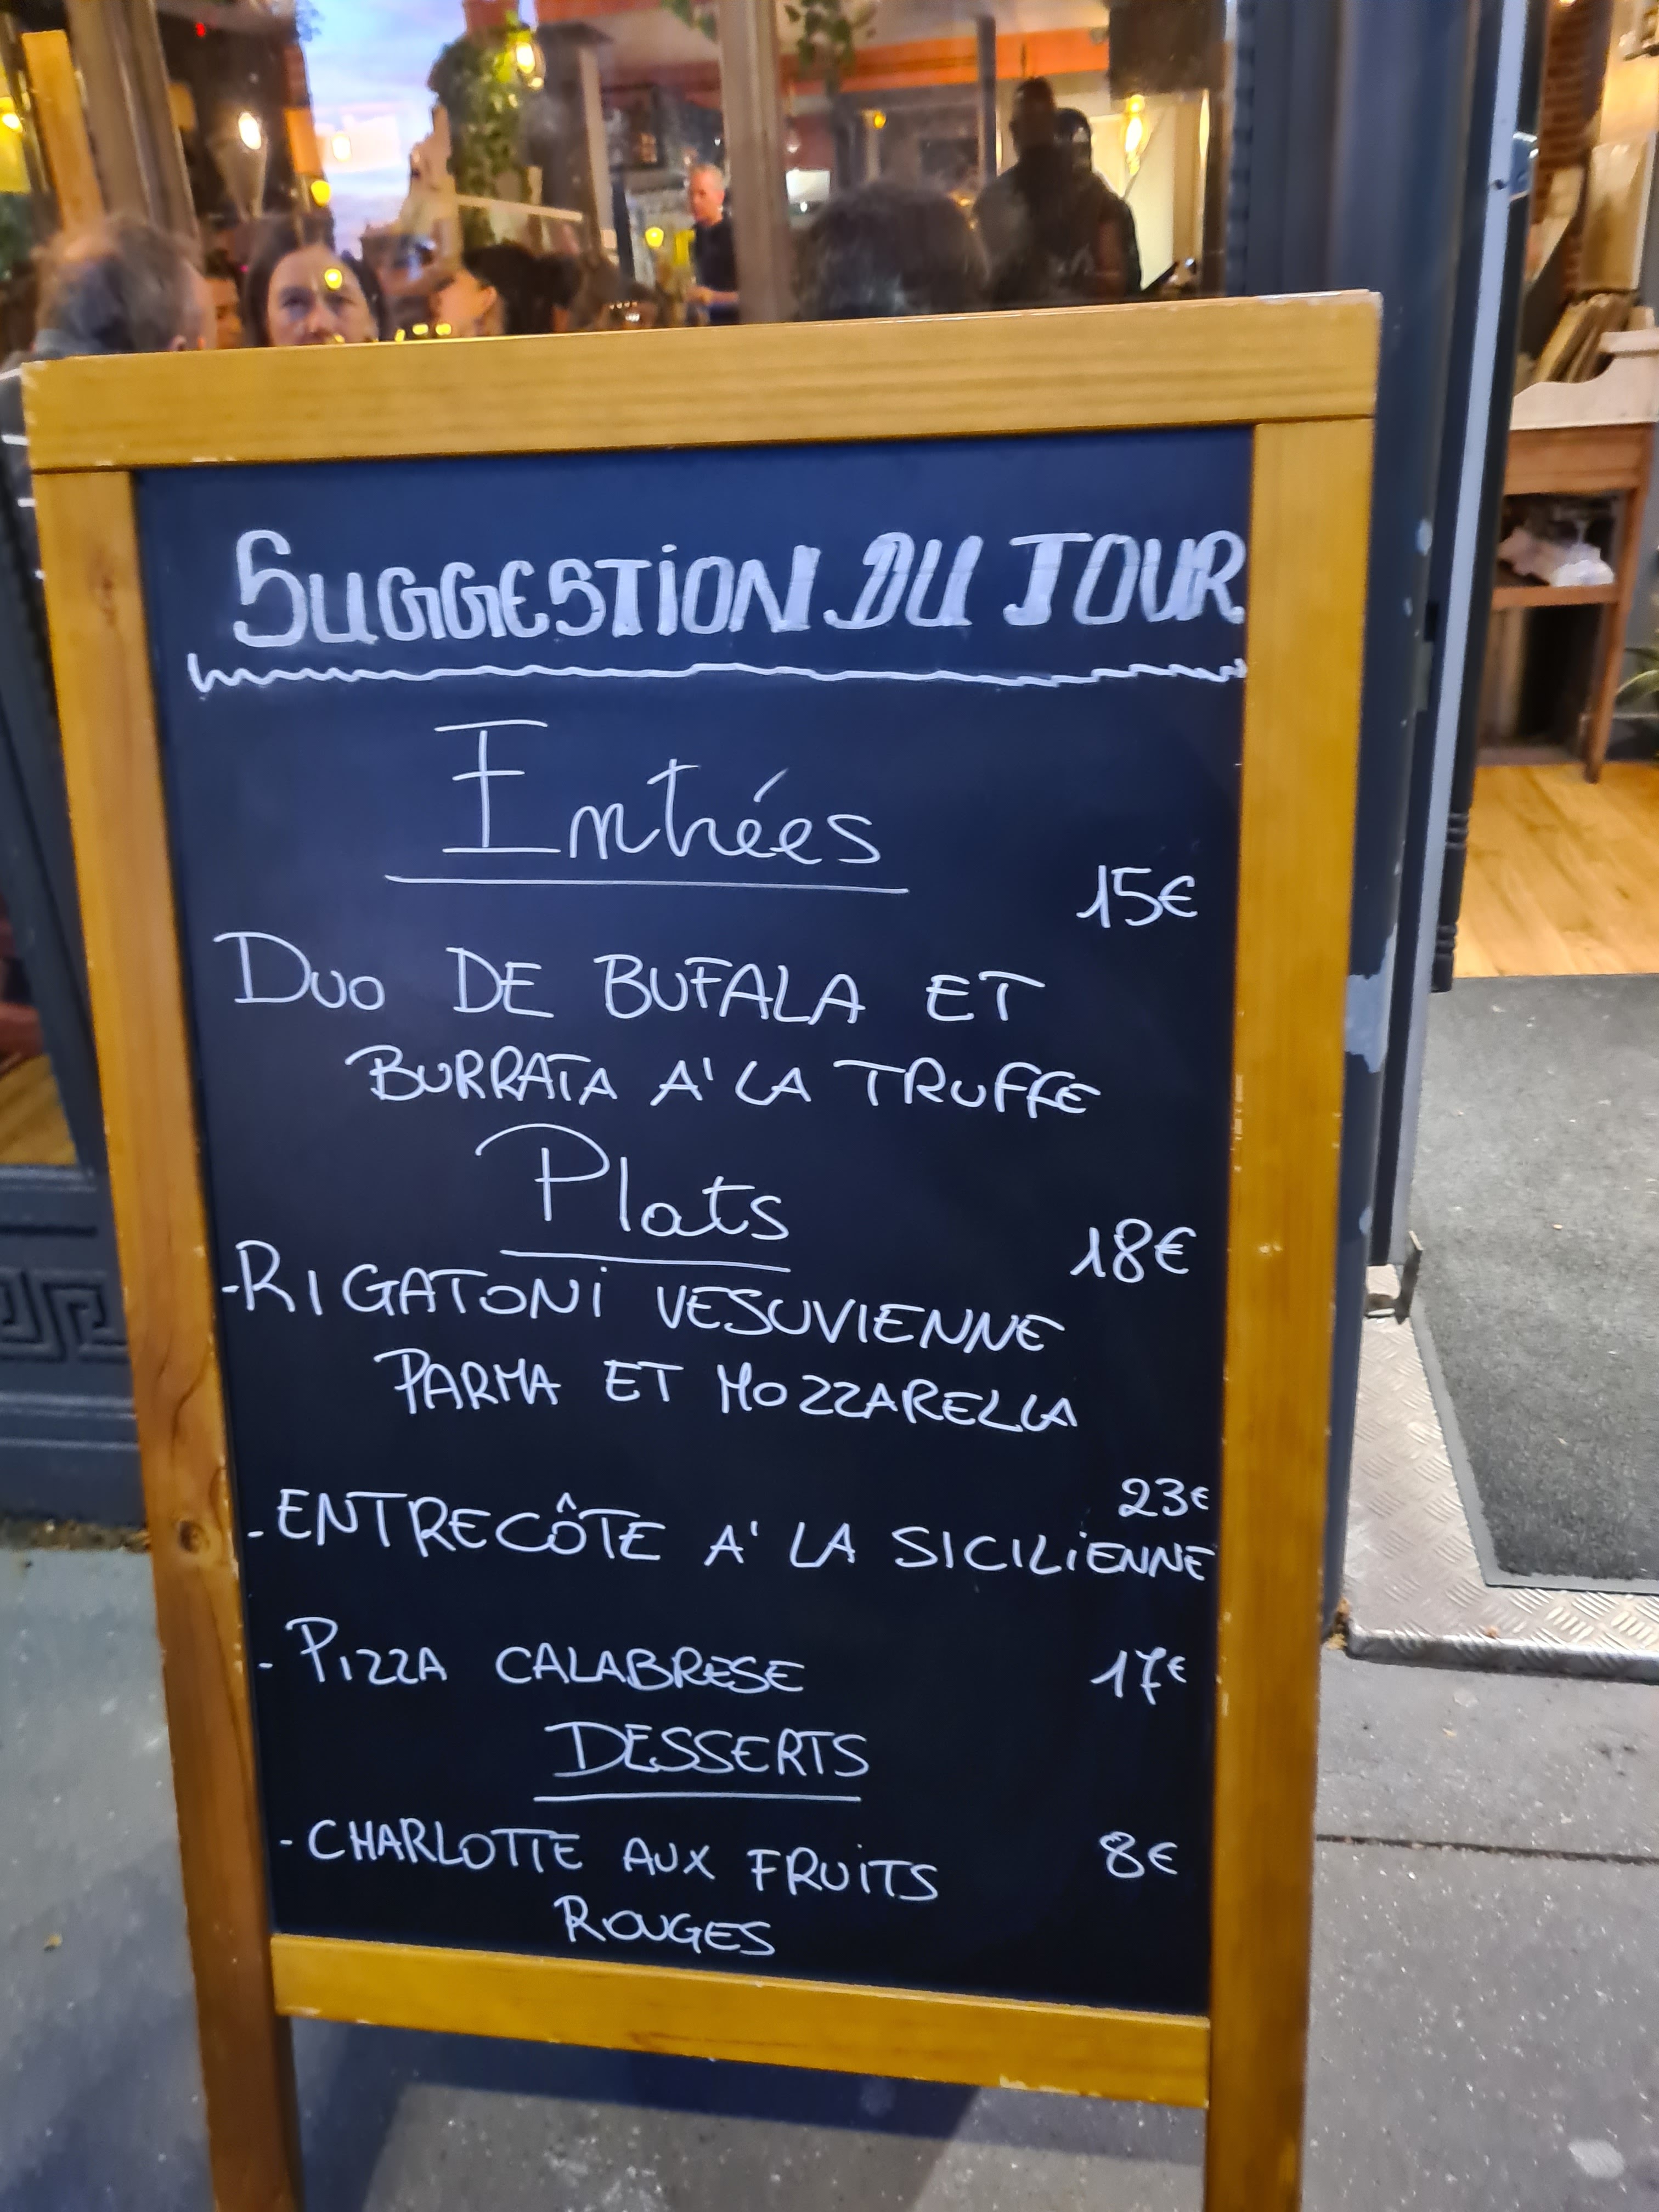 SUGGESTION DU JOUR
Entrées
15€
DUO DE BUFALA ET
BURRATA A' LA TRUFFE
Plats
18€
-RIGATONI VESUVIENNE
PARMA ET MOZZARELLA
23€
-ENTRECÔTE A' LA SICILIENNE
-PIZZA CALABRESE 17€
DESSERTS
-CHARLOTTE AUX FRUITS 8€
ROUGES